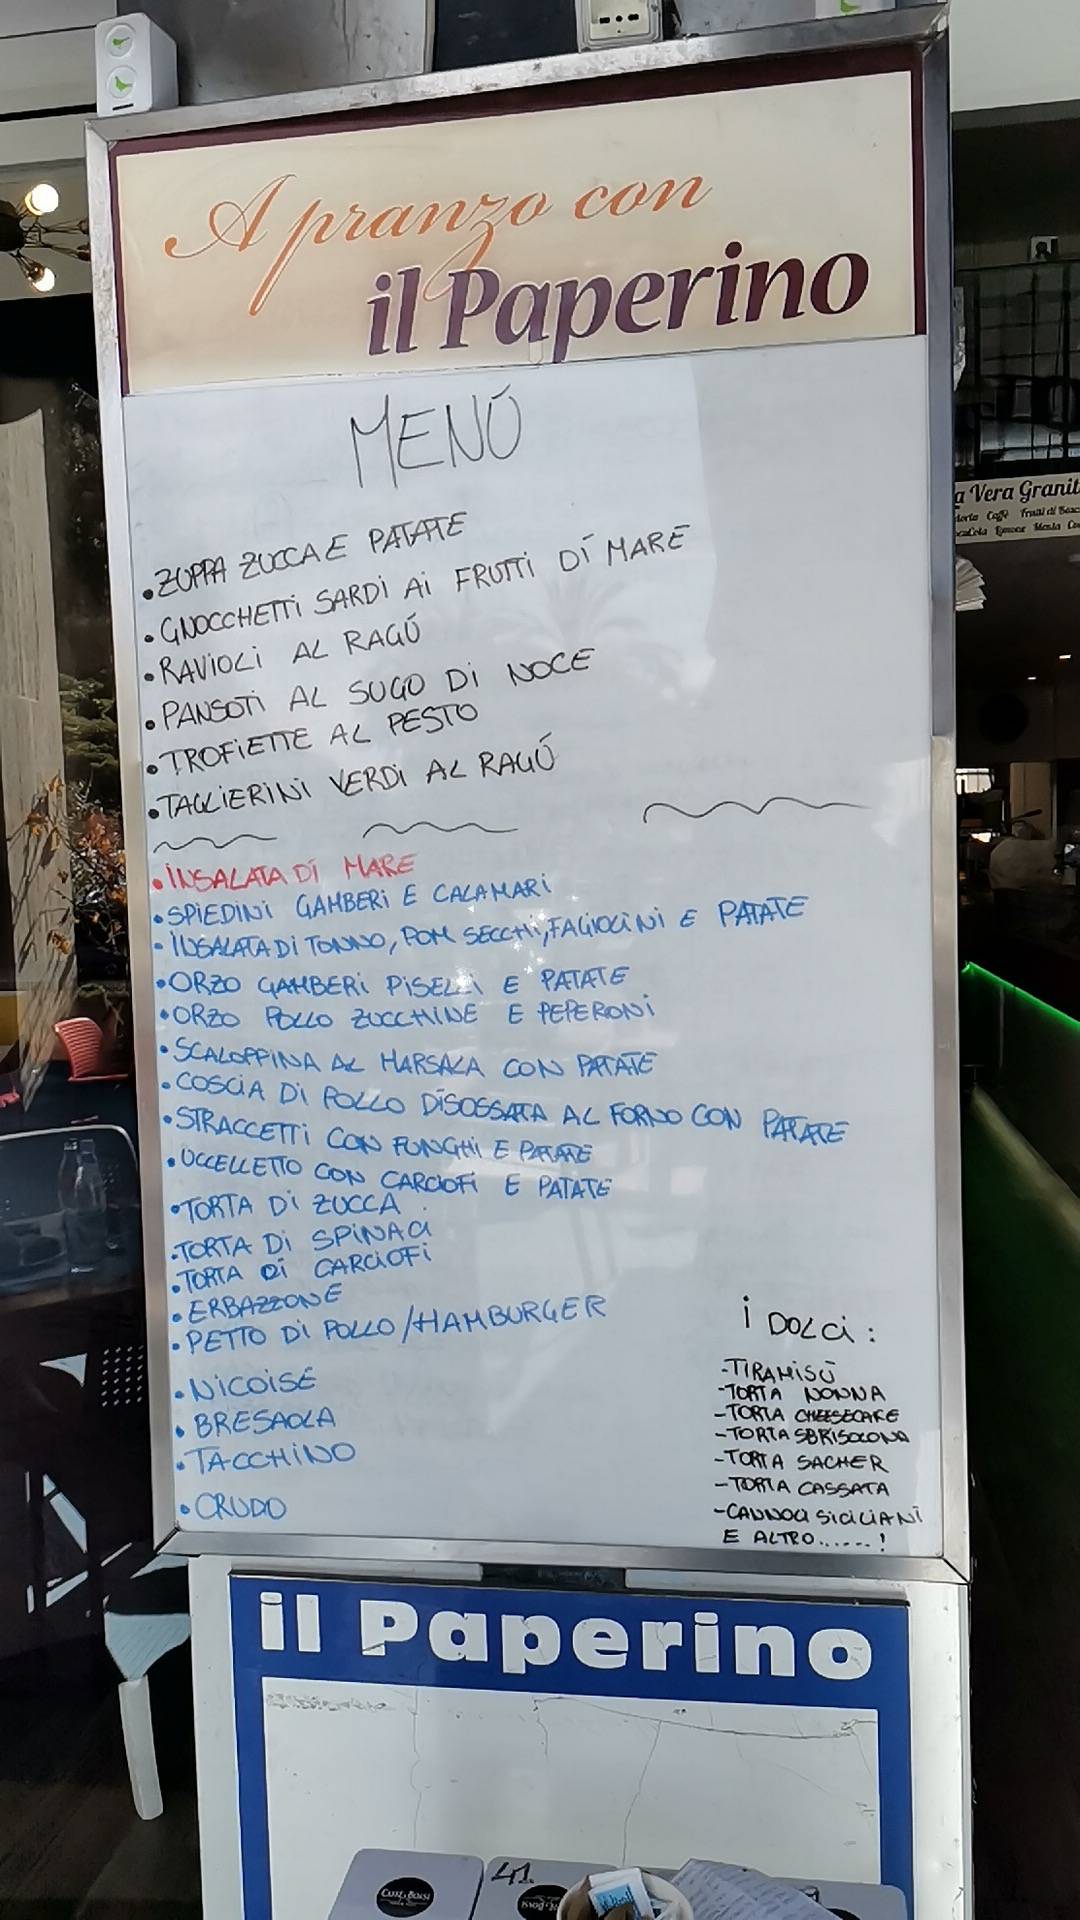 A pranzo con
il Paperino
MENÚ
•ZUPPA ZUCCA E PATATE
•GNOCCHETTI SARDI AI FRUTTI DÍ MARE
•RAVIOLI AL RAGÚ
•PANSOTI AL SUGO DI NOCE
•TROFIETTE AL PESTO
•TAGLIERINI VERDI AL RAGÚ
•INSALATA DÍ MARE
•SPIEDINI GAMBERI E CALAMARI
•INSALATA DI TONNO, POM SECCHI, FAGIOLINI E PATATE
•ORZO GAMBERI PISELLI E PATATE
•ORZO POLLO ZUCCHINE E PEPERONI
•SCALOPPINA AL MARSALA CON PATATE
•COSCIA DI POLLO DISOSSATA AL FORNO CON PATATE
•STRACCETTI CON FUNGHI E PATATE
•UCCELLETTO CON CARCIOFI E PATATE
•TORTA DI ZUCCA
•TORTA DI SPINACI
•TORTA DI CARCIOFI
•ERBAZZONE
•PETTO DI POLLO/HAMBURGER
•NICOISE
•BRESAOLA
•TACCHINO
•CRUDO
I DOLCI:
-TIRAMISÚ
-TORTA NONNA
-TORTA CHEESECAKE
-TORTA SBRISOLONA
-TORTA SACHER
-TORTA CASSATA
-CANNOLI SICILIANI
E ALTRO......!
a Vera Granit
Caffè Frutti di Bosc
Limone Menta
il Paperino
41